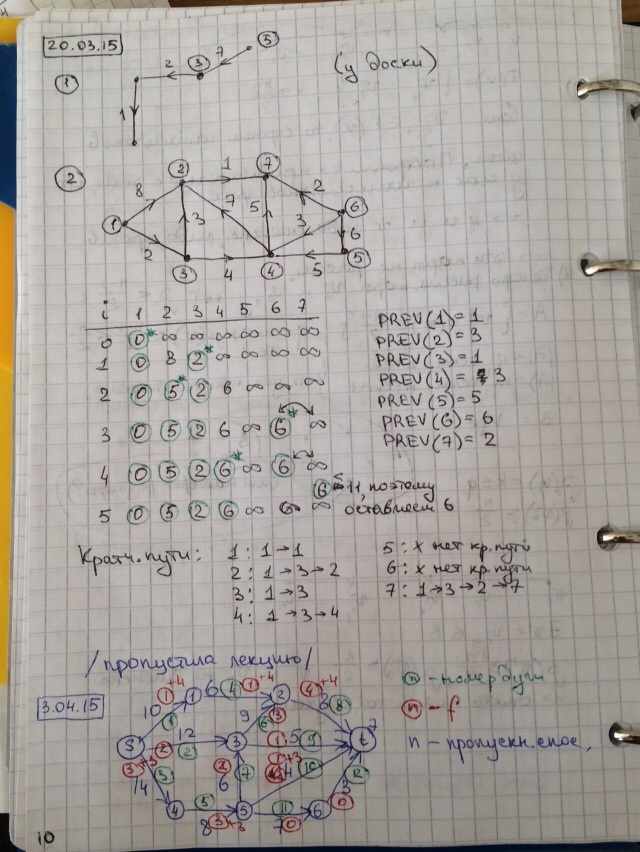 20.03.15
1
2 3 7 5
(у доски)
1
2
2 1 7
8 7 5 2 6
1 3 3 6
2 4 5
3 4 5
i 1 2 3 4 5 6 7
0 0* ∞ ∞ ∞ ∞ ∞ ∞
1 0 8 2* ∞ ∞ ∞ ∞
2 0 5* 2 6 ∞ ∞ ∞
3 0 5 2 6 ∞ 6* ∞
4 0 5 2 6* ∞ 6 ∞
6 ≤ 11, поэтому
5 0 5 2 6 ∞ 6 ∞ оставляем 6
PREV(1) = 1
PREV(2) = 3
PREV(3) = 1
PREV(4) = 3
PREV(5) = 5
PREV(6) = 6
PREV(7) = 2
Кратч. пути:
1: 1→1
2: 1→3→2
3: 1→3
4: 1→3→4
5: x нет кр. пути
6: x нет кр. пути
7: 1→3→2→7
/пропустила лекцию/
3.04.15
n - номер дуги
n - f
n - пропускн. спос.
10 1 6 4 1 +4 2 4 +4 8
S 12 2 3 9 6 3 5 9 t
14 4 6 7 4 10 12
8 3 +3 5 7 11 0 6 3 0
10